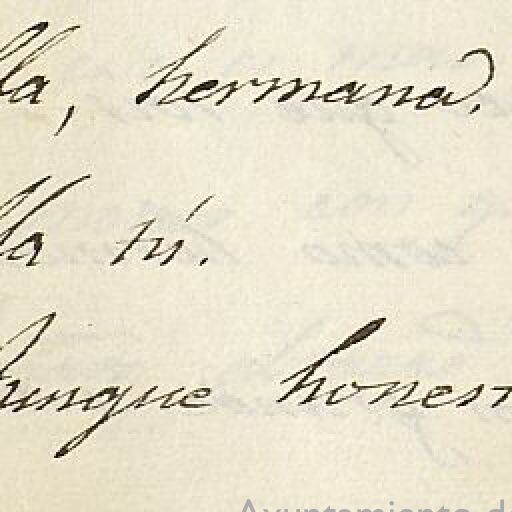 lla, hermana.
lla tú.
Aunque honest
Ayuntamiento de